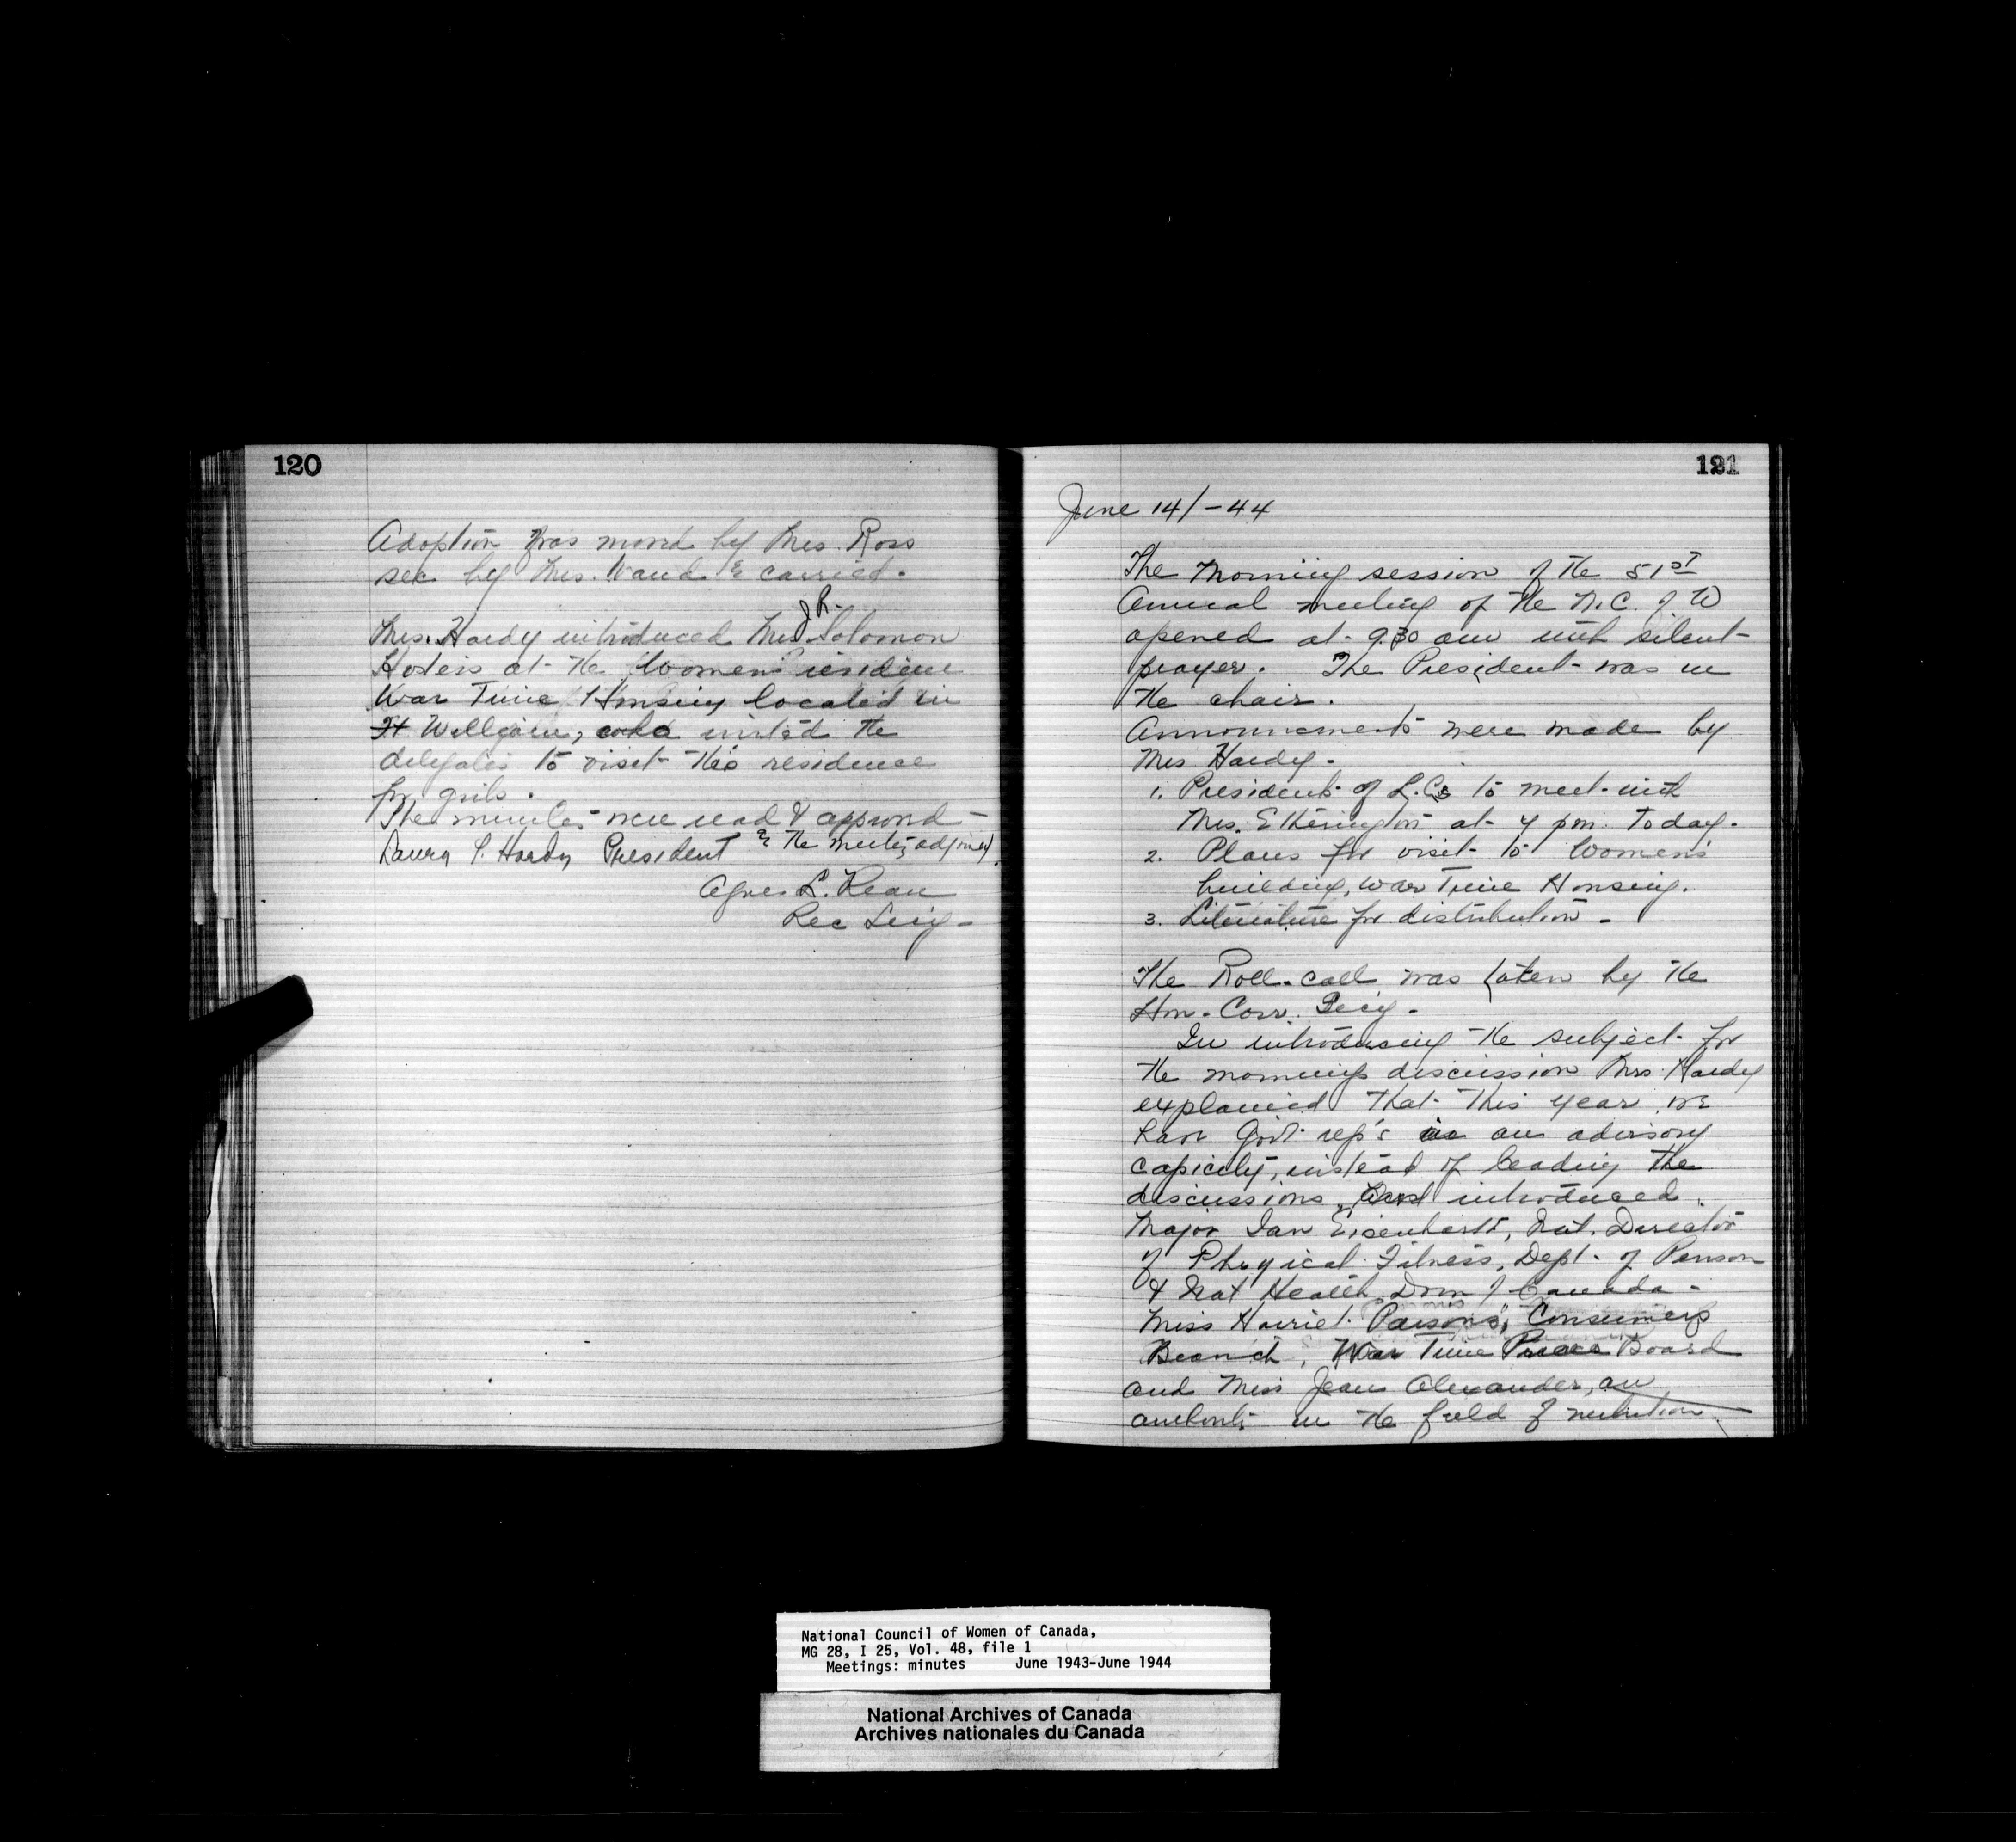 120
Adoption was moved by Mrs. Ross
sec by Mrs. Wand & carried.
J R.
Mrs. Hardy introduced Mrs Solomon
Hostess at the Women's residence
War Time Housing located in
Ft William, who invited the
delegates to visit this residence
for girls.
The minutes were read & approved –
Laura P. Hardy President & the meeting adjourned.
Agnes L. Kean
Rec Secy –
121
June 14/–44
The Morning session of the 51st
Annual meeting of the N.C. of W
opened at 9.30 am with silent
prayer. The President was in
the chair.
Announcements were made by
Mrs Hardy –
1. President of L.Cs to meet with
Mrs. Etherington at 4 pm. Today.
2. Plans for visit to Women's
building, War Time Housing.
3. Literature for distribution –
The Roll-call was taken by the
Hon. Corr. Secy –
In introducing the subject for
the mornings discussion Mrs. Hardy
explained that this year we
have Govt rep's in an advisory
capicity, instead of leading the
discussions, and introduced
Major Ian Eisenhardt, Nat. Director
of Physical Fitness, Dept. of Pension
& Nat Health, Dom of Canada –
Miss Harriet Parsons, Consumers
Branch, War Time Prices Board
and Miss Jean Alexander, an
authority in the field of nutrition.
National Council of Women of Canada,
MG 28, I 25, Vol. 48, file 1
Meetings: minutes June 1943-June 1944
National Archives of Canada
Archives nationales du Canada